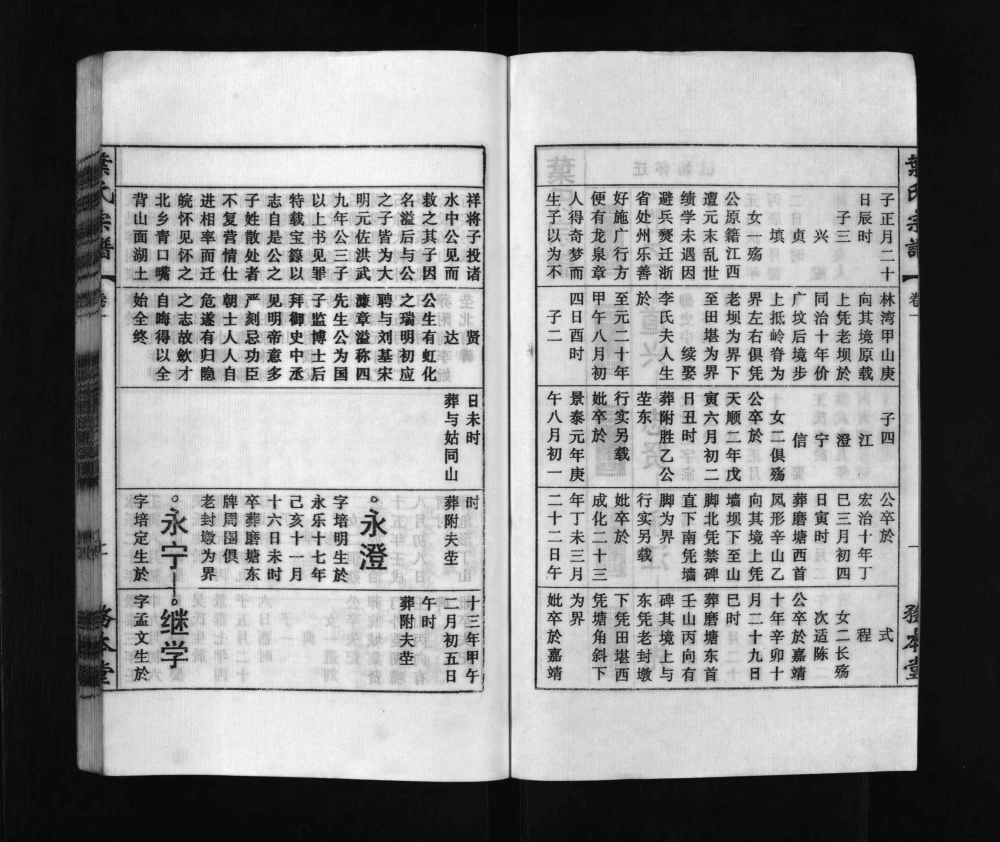 葉氏宗譜
卷一
一
務本堂
子正月二十
日辰时
子三
兴
贞
填
女一殇
公原籍江西
遭元末乱世
绩学未遇因
避兵燹迁浙
省处州乐善
好施广行方
便有龙泉章
人得奇梦而
生子以为不
林湾甲山庚
向其境原载
上凭老坝於
同治十年价
广坟后境步
上抵岭脊为
界左右俱凭
老坝为界下
至田堪为界
续娶
李氏夫人生
於
至元二十年
甲午八月初
四日酉时
子二
子四
江
澄
宁
信
女二俱殇
公卒於
天顺二年戊
寅六月初二
日丑时
葬附胜乙公
茔东
行实另载
妣卒於
景泰元年庚
午八月初一
公卒於
宏治十年丁
巳三月初四
日寅时
葬磨塘西首
凤形辛山乙
向其境上凭
墙坝下至山
脚北凭禁碑
直下南凭墙
脚为界
行实另载
妣卒於
成化二十三
年丁未三月
二十二日午
式
程
女二长殇
次适陈
公卒於嘉靖
十年辛卯十
月二十九日
巳时
葬磨塘东首
壬山丙向有
碑其境上与
东凭老封墩
下凭田堪西
凭塘角斜下
为界
妣卒於嘉靖
祥将子投诸
水中公见而
救之其子因
名溢后与公
之子皆为大
明元佐洪武
九年公三子
以上书见罪
特载宝箓以
志自是公之
子姓散处者
不复营情仕
进相率而迁
皖怀见怀之
北乡青口嘴
背山面湖土
贤
达
公生有虹化
之瑞明初应
聘与刘基宋
濂章溢称四
先生公为国
子监博士后
拜御史中丞
见明帝意多
严刻忌功臣
朝士人人自
危遂有归隐
之志故歛才
自晦得以全
始全终
日未时
葬与姑同山
时
葬附夫茔
永澄
字培明生於
永乐十七年
己亥十一月
十六日未时
卒葬磨塘东
牌周围俱
老封墩为界
永宁
字培定生於
十三年甲午
二月初五日
午时
葬附夫茔
继学
字孟文生於
葉氏宗譜
卷一
十一
務本堂